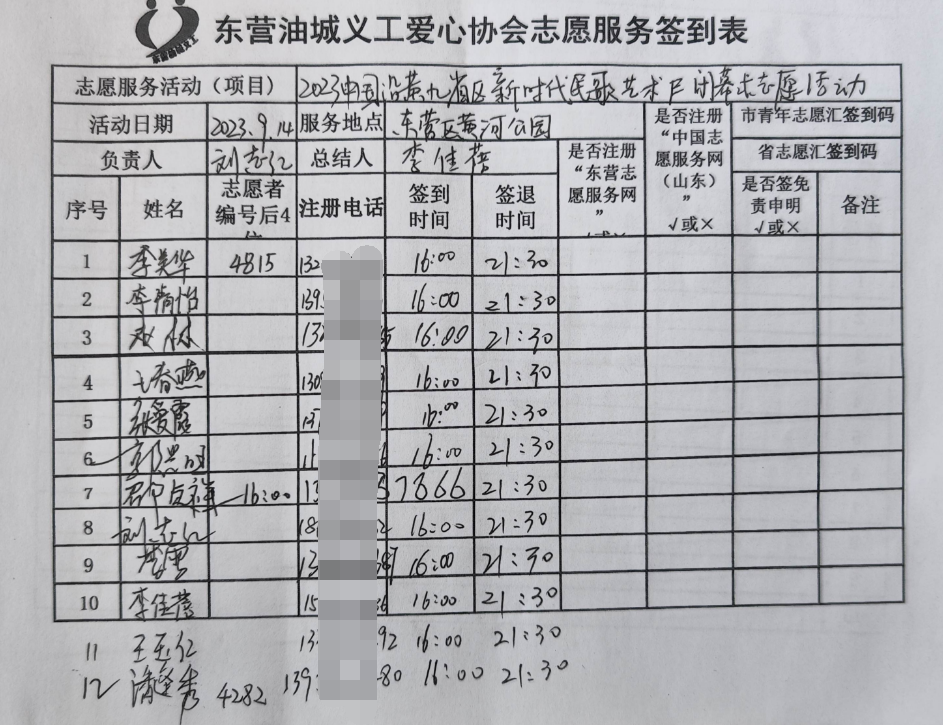 东营油城义工爱心协会志愿服务签到表
志愿服务活动（项目） 2023中国沿黄九省区新时代民歌艺术节闭幕式志愿活动
活动日期 2023.9.14 服务地点 东营区黄河公园 是否注册“东营志愿服务网” 是否注册“中国志愿服务网（山东） √或× 市青年志愿汇签到码
负责人 刘志仁 总结人 李佳蓓 省志愿汇签到码
序号 姓名 志愿者编号后4位 注册电话 签到时间 签退时间 是否签免责申明 √或× 备注
1 李美华 4815 132 16:00 21:30
2 李倩怡 139 16:00 21:30
3 林 13 16:00 21:30
4 王春燕 130 16:00 21:30
5 张爱霞 16:00 21:30
6 16:00 21:30
7 16:00 13 57866 21:30
8 刘志仁 18 16:00 21:30
9 13 16:00 21:30
10 李佳蓓 15 36 16:00 21:30
11 王玉仁 13 92 16:00 21:30
12 秀 4282 139 80 16:00 21:30